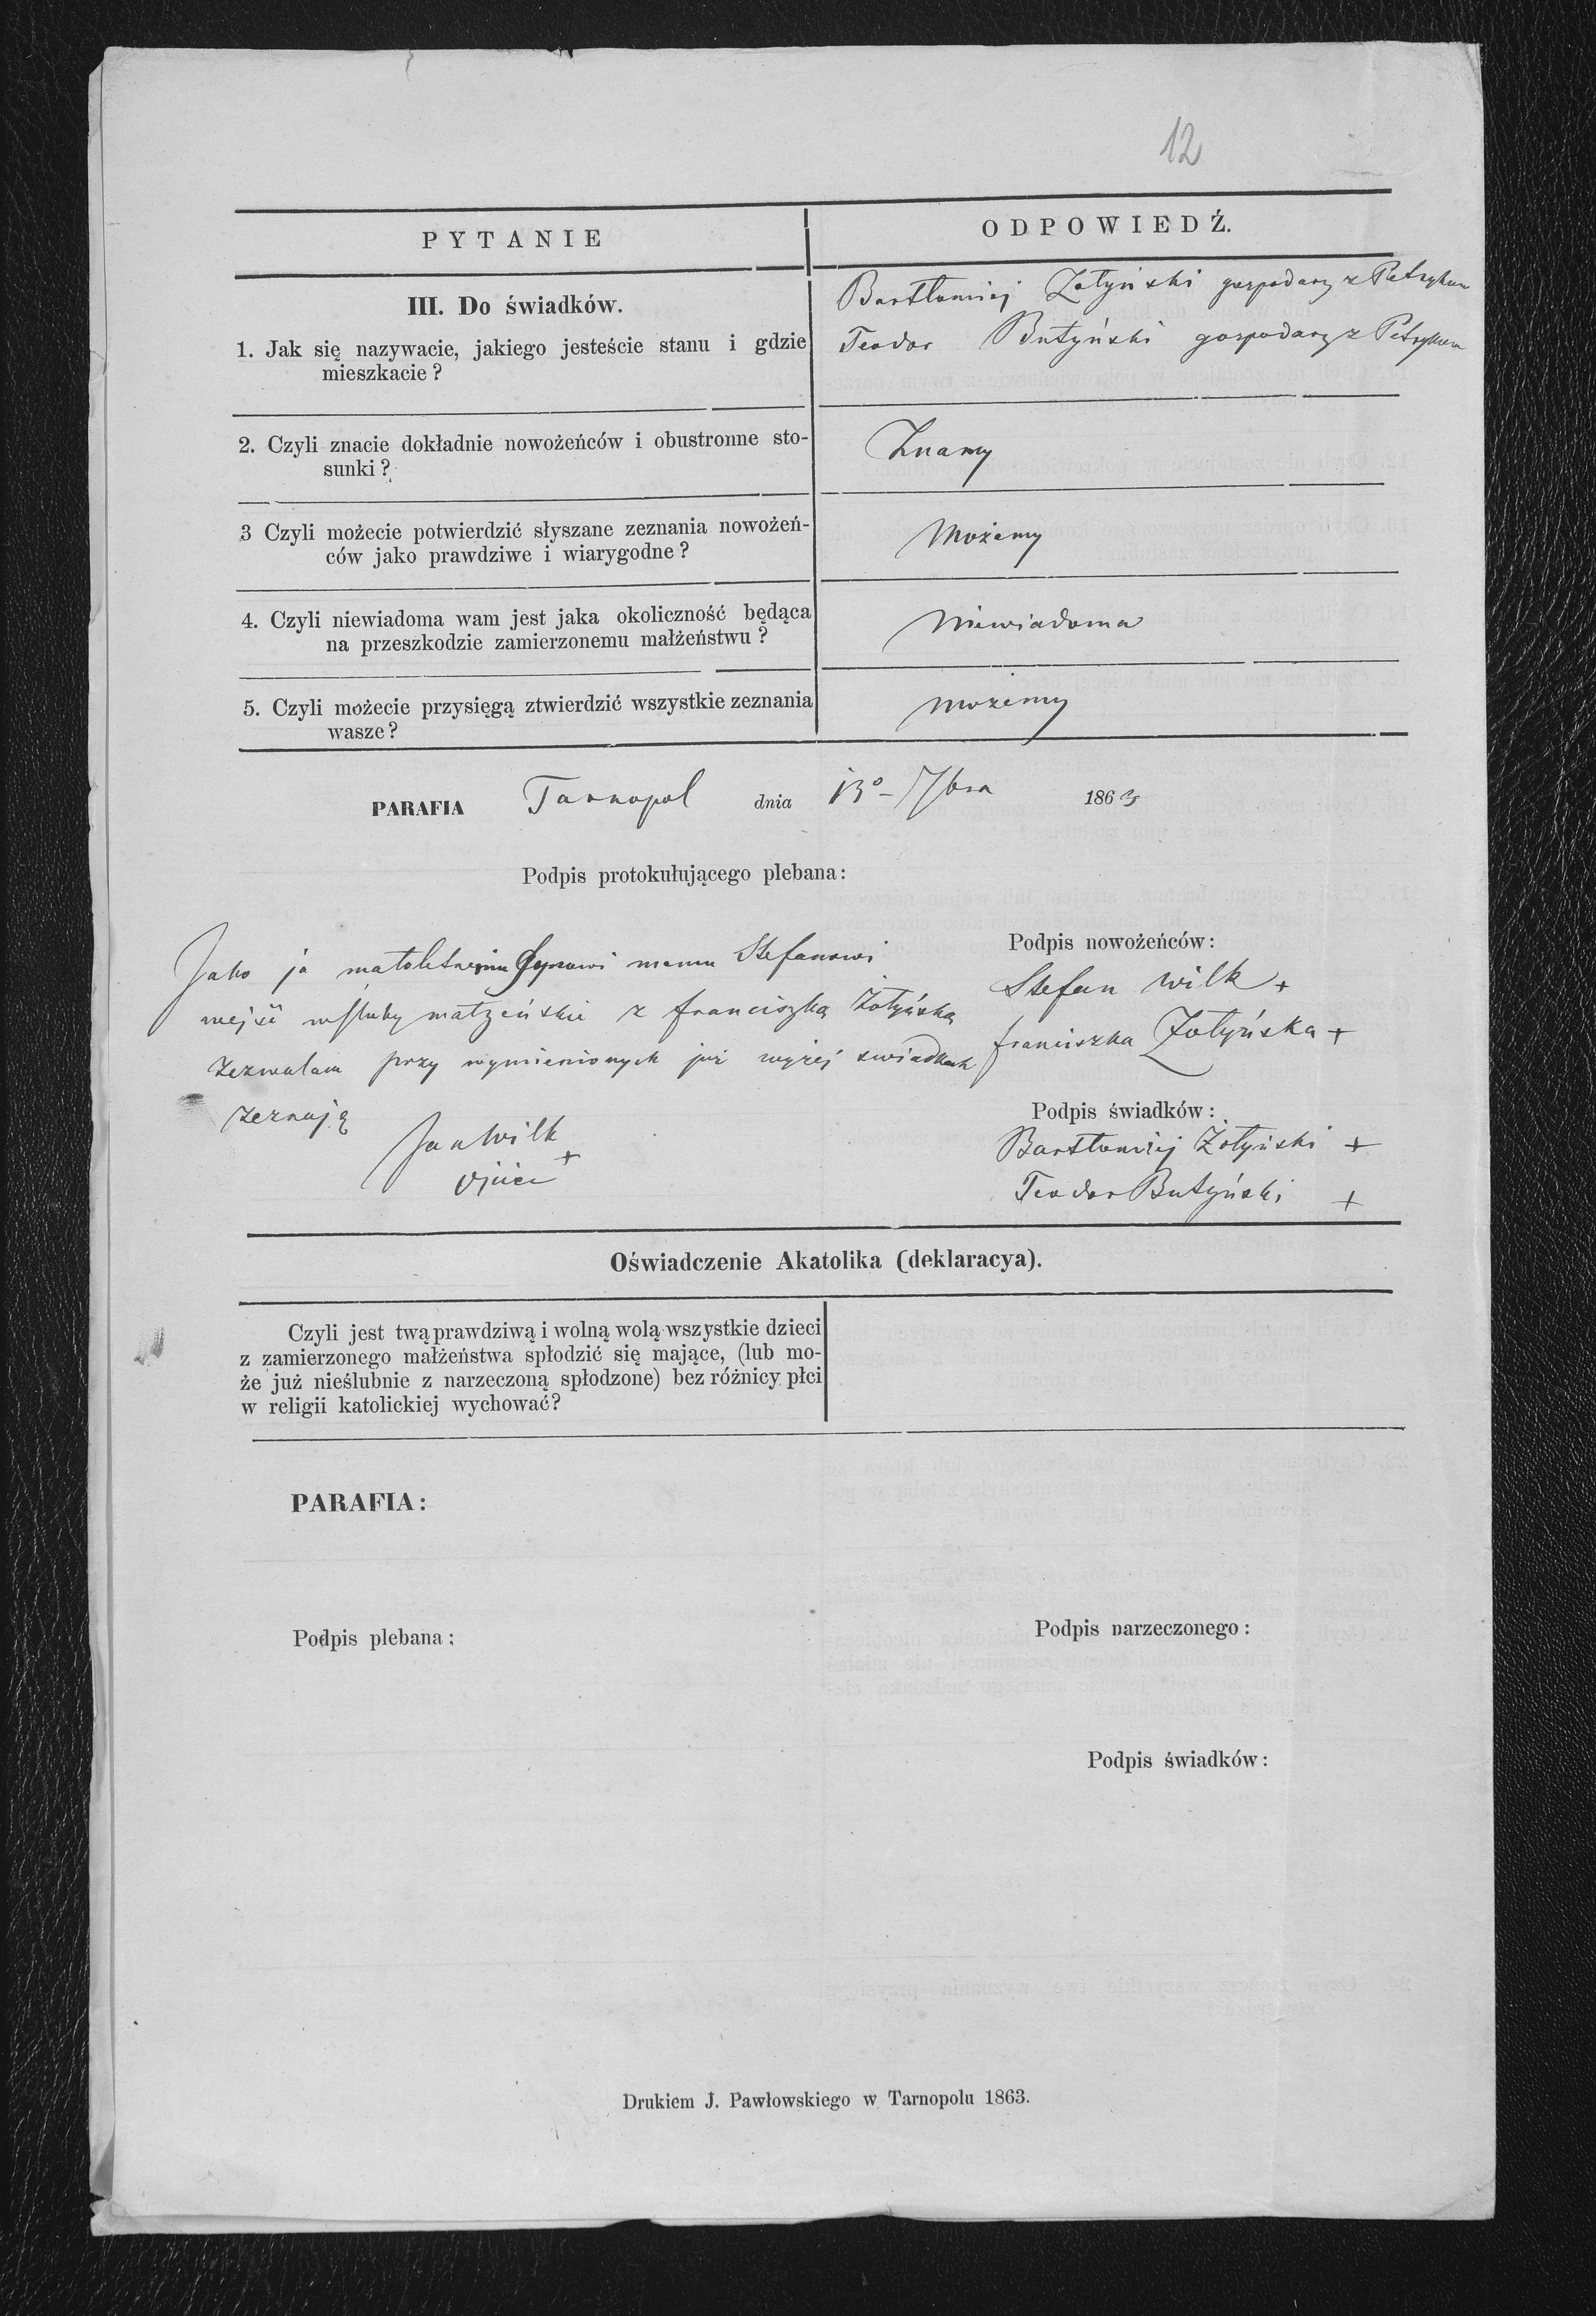 12
PYTANIE
ODPOWIEDŹ.
III. Do świadków.
1. Jak się nazywacie, jakiego jesteście stanu i gdzie
mieszkacie?
Bartłomiej Żołyński gospodarz z Petrykow
Teodor Butyński gospodarz z Petrykow
2. Czyli znacie dokładnie nowożeńców i obustronne sto-
sunki?
Znamy
3 Czyli możecie potwierdzić słyszane zeznania nowożeń-
ców jako prawdziwe i wiarygodne?
Możemy
4. Czyli niewiadoma wam jest jaka okoliczność będąca
na przeszkodzie zamierzonemu małżeństwu?
Niewiadoma
5. Czyli możecie przysięgą ztwierdzić wszystkie zeznania
wasze?
możemy
PARAFIA Tarnopol dnia 13º 7bra 1863
Podpis protokułującego plebana:
Jako ja małoletniemu Synowi memu Stefanowi
wejść w śluby małżeńskie z franciszką Żołyńską
zezwalam przy wymienionych już wyżej swiadkach
zeznają
Jan Wilk +
ojciec
Podpis nowożeńców:
Stefan Wilk +
franciszka Żołyńska +
Podpis świadków:
Bartłomiej Żołyński +
Teodor Butyński +
Oświadczenie Akatolika (deklaracya).
Czyli jest twą prawdziwą i wolną wolą wszystkie dzieci
z zamierzonego małżeństwa spłodzić się mające, (lub mo-
że już nieślubnie z narzeczoną spłodzone) bez różnicy płci
w religii katolickiej wychować?
PARAFIA:
Podpis plebana:
Podpis narzeczonego:
Podpis świadków:
Drukiem J. Pawłowskiego w Tarnopolu 1863.